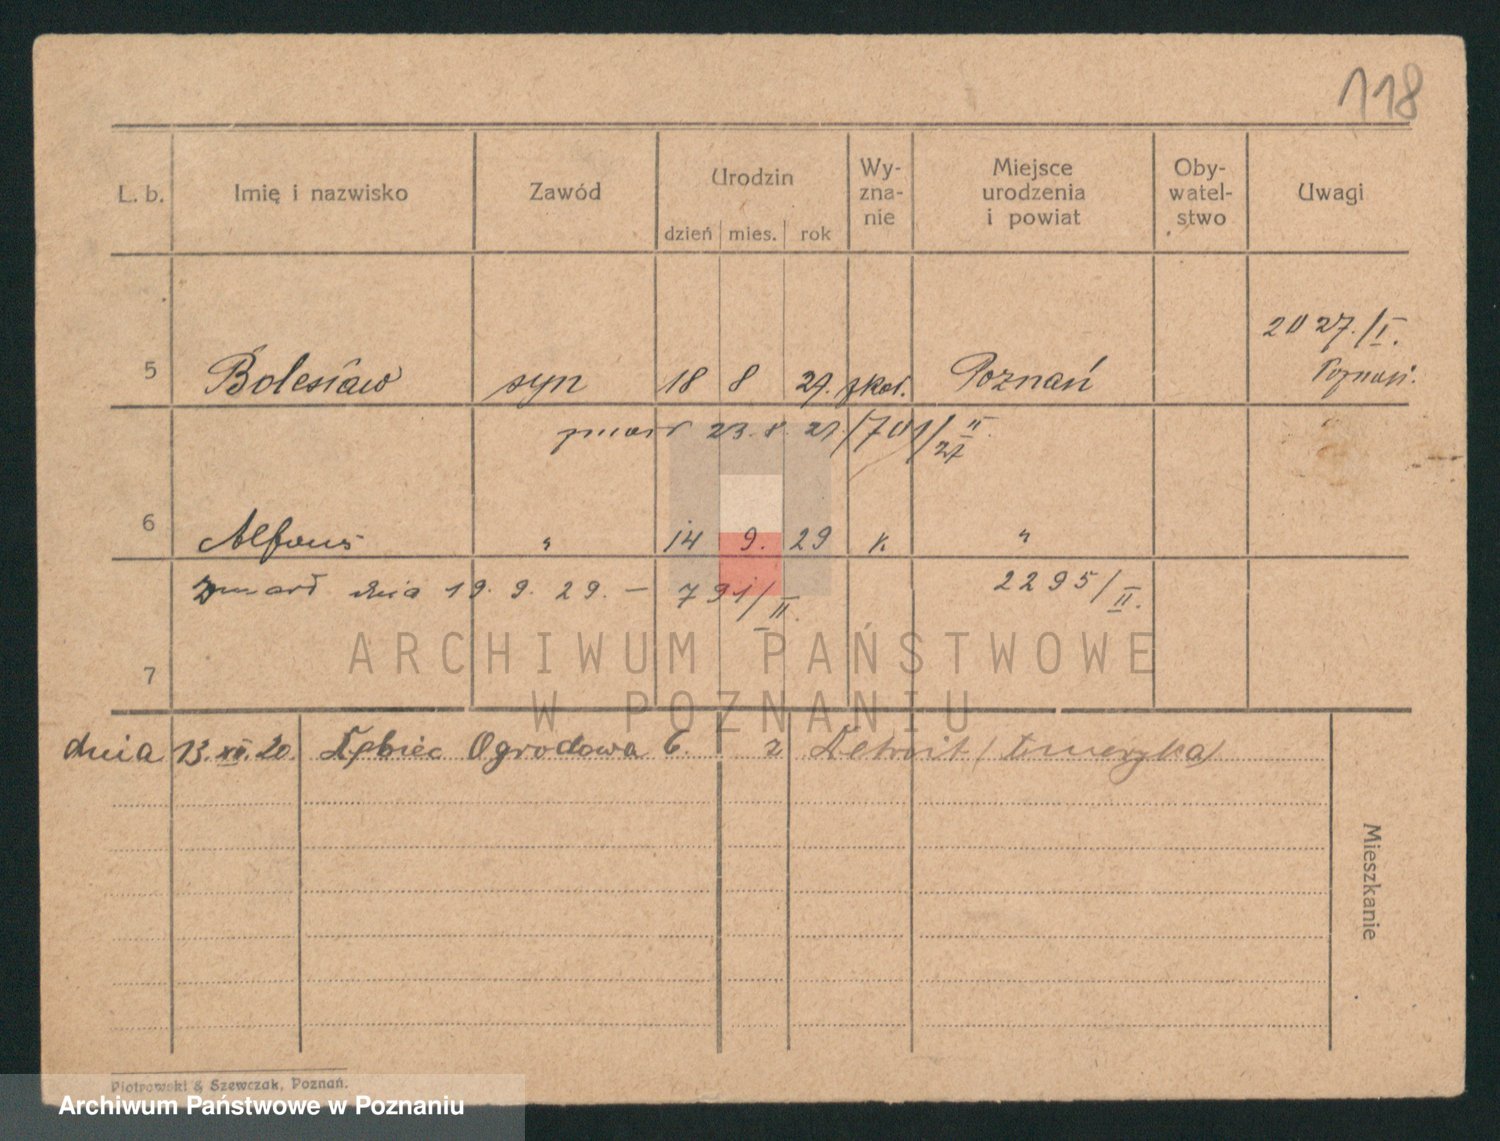 118
L. b. Imię i nazwisko Zawód Urodzin dzień mies. rok Wy-zna-nie Miejsce urodzenia i powiat Oby-watel-stwo Uwagi
2027./I.
5 Bolesław syn 18 8 27. rzkat. Poznań Poznań.
zmarł 23. 8. 27. /701/II 27
6 Alfons " 14 9. 29 k. "
zmarł dnia 19. 9. 29. — 791/II. 2295/II.
7
ARCHIWUM PAŃSTWOWE
W POZNANIU
dnia 13. XII. 20. Dębiec Ogrodowa 6. 2 Detroit (Ameryka)
Mieszkanie
Piotrowski & Szewczak, Poznań.
Archiwum Państwowe w Poznaniu